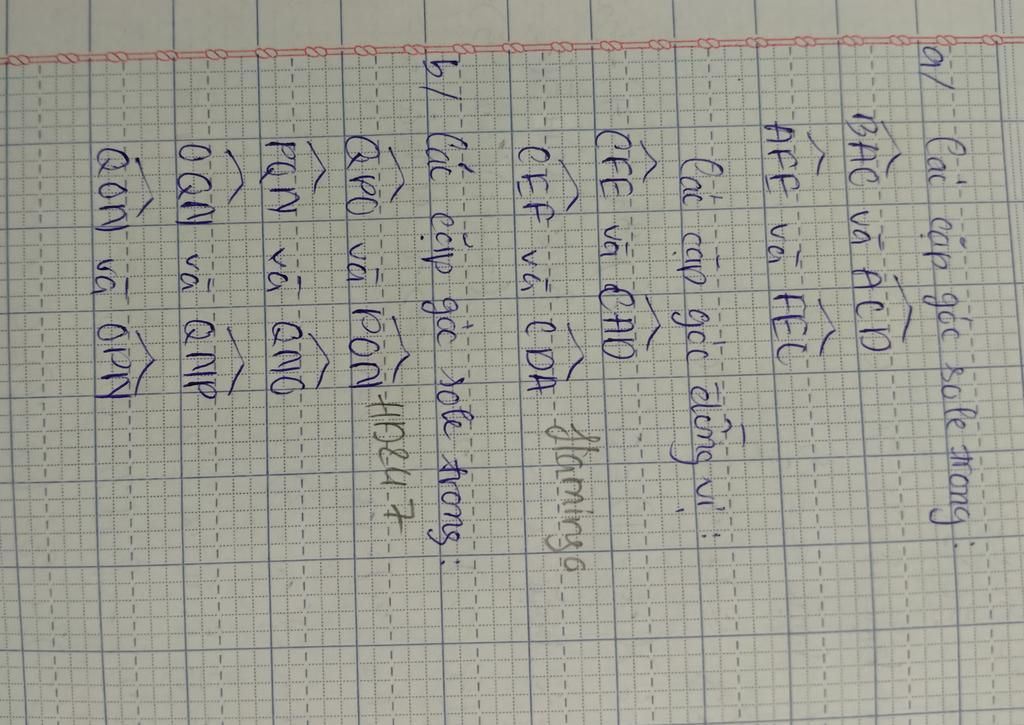 a/ Các cặp góc sole trong:
BAC và ACD
AFE và FEC
Các cặp góc đồng vị:
CFE và CAD
CEF và CDA
Flamingo
b/ Các cặp góc sole trong:
QPO và PON
HD247
PQN và QNO
OQN và QNP
QON và OPN